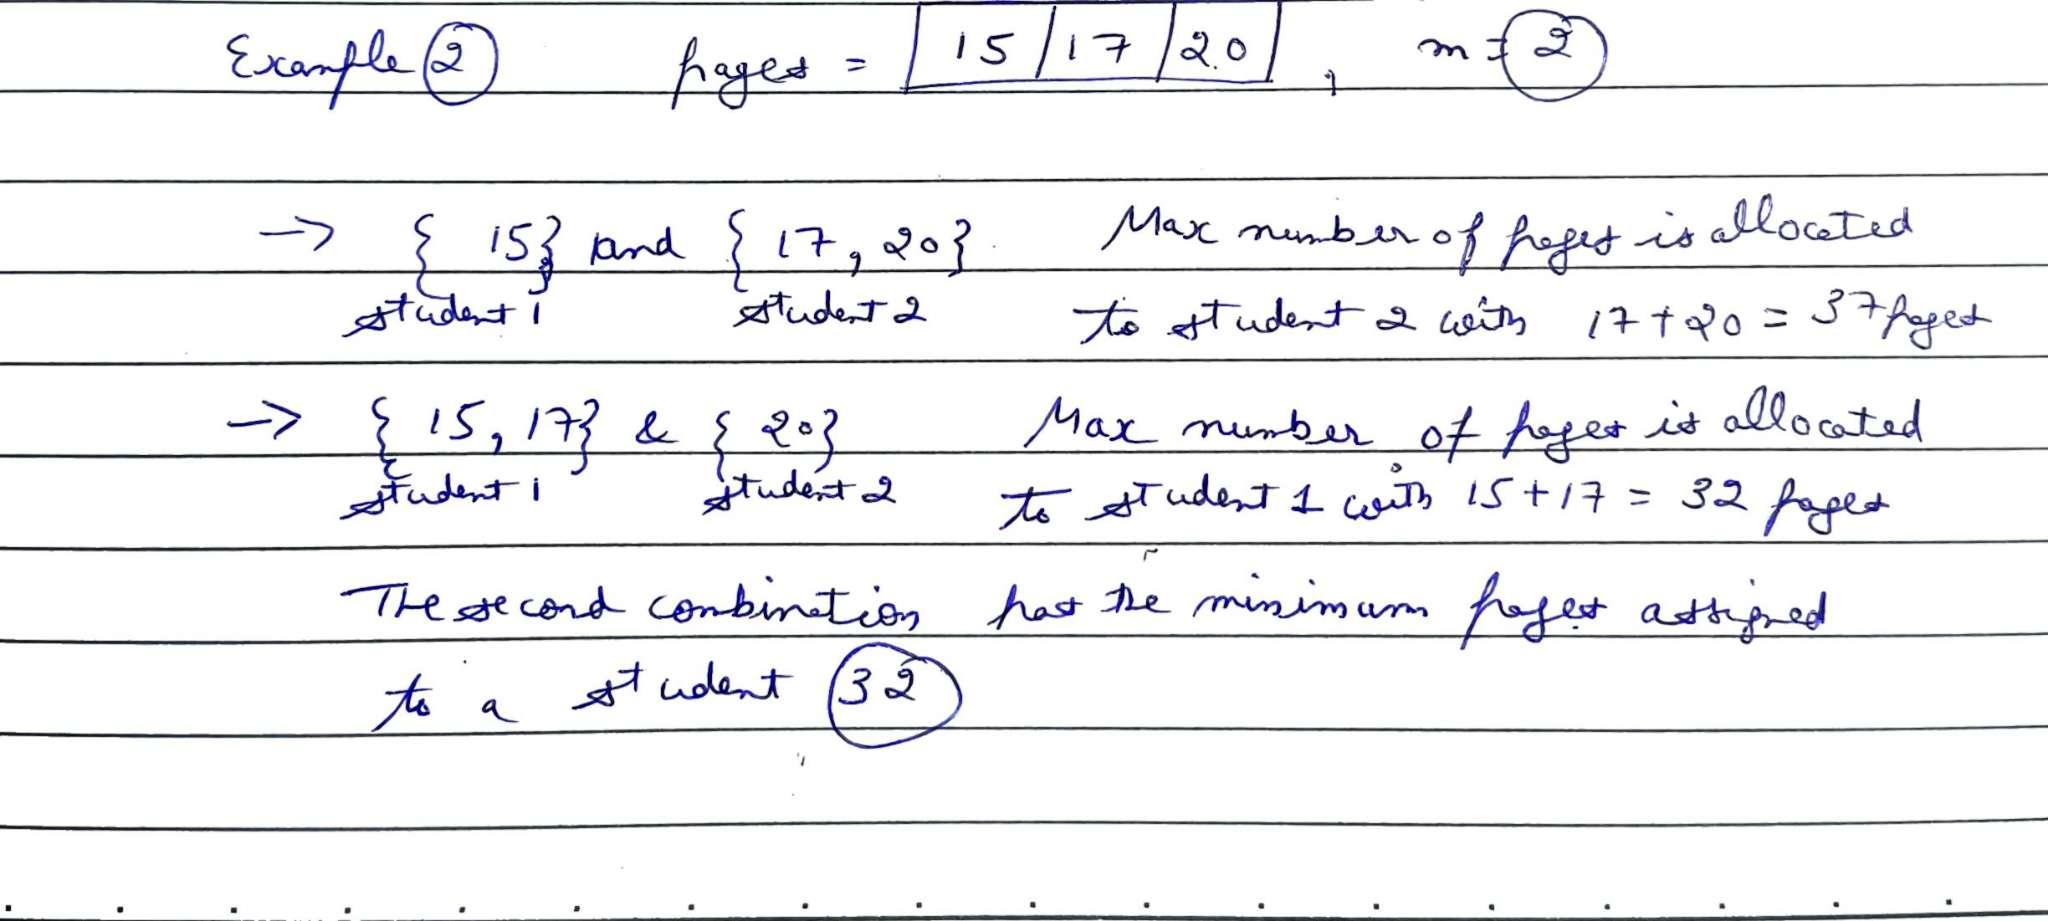 Example 2 pages = 15 | 17 | 20 , m = 2
→ { 15} and { 17, 20} Max number of pages is allocated
student 1 student 2 to student 2 with 17 + 20 = 37 pages
→ { 15, 17} & { 20} Max number of pages is allocated
student 1 student 2 to student 1 with 15 + 17 = 32 pages
The second combination has the minimum pages assigned
to a student 32